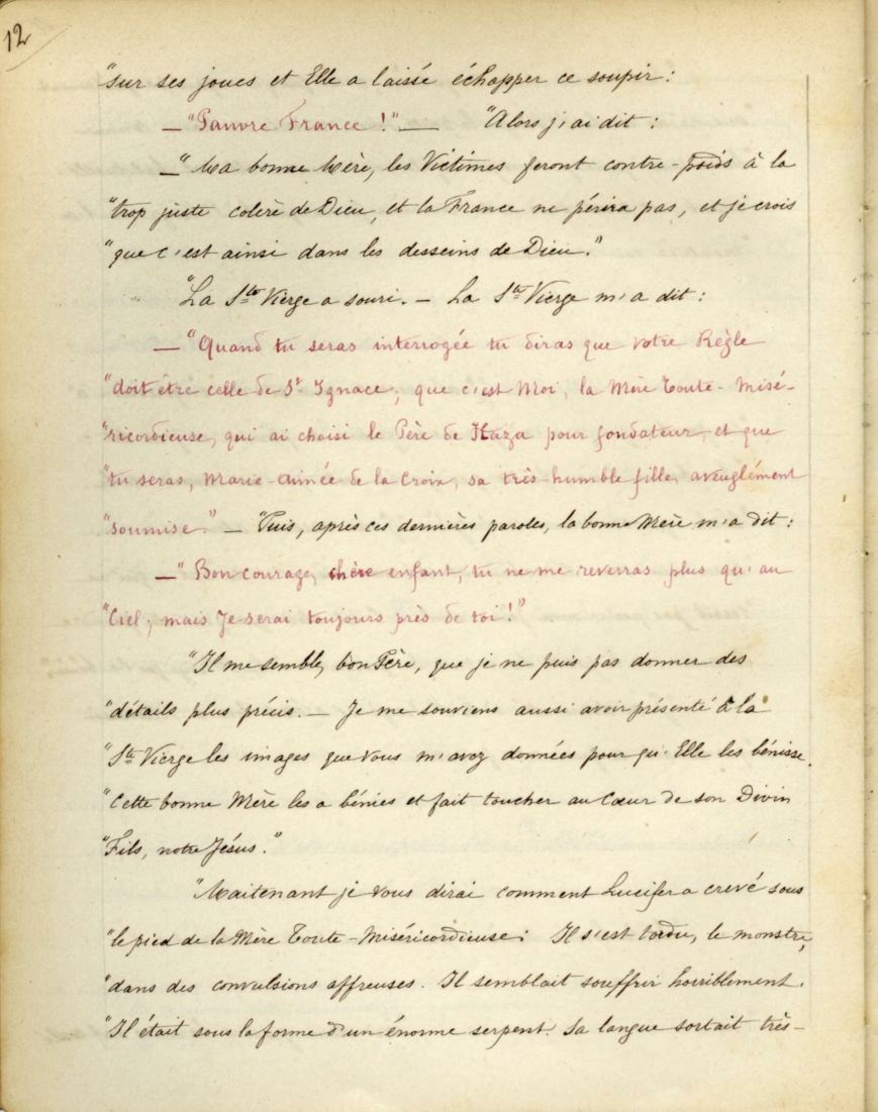 12
"sur ses joues et Elle a laissé échapper ce soupir :
— "Pauvre France !" — "Alors j'ai dit :
— "Ma bonne Mère, les Victimes feront contre-poids à la
"trop juste colère de Dieu, et la France ne périra pas, et je crois
"que c'est ainsi dans les desseins de Dieu."
"La Ste Vierge a souri. — La Ste Vierge m'a dit :
— "Quand tu seras interrogée tu diras que votre Règle
"doit être celle de St Ignace ; que c'est Moi, la Mère Toute-Misé-
"ricordieuse, qui ai choisi le Père de Haza pour fondateur, et que
"tu seras, Marie-Aimée de la Croix, sa très humble fille, aveuglément
"soumise." — "Puis, après ces dernières paroles, la bonne Mère m'a dit :
— "Bon courage, chère enfant, tu ne me reverras plus qu'au
"Ciel ; mais Je serai toujours près de toi !"
"Il me semble, bon Père, que je ne puis pas donner des
"détails plus précis. — Je me souviens aussi avoir présenté à la
"Ste Vierge les images que vous m'avez données pour qu'Elle les bénisse.
"Cette bonne Mère les a bénies et fait toucher au Cœur de son Divin
"Fils, notre Jésus."
"Maitenant je vous dirai comment Lucifer a crevé sous
"le pied de la Mère Toute-Miséricordieuse : Il s'est tordu, le monstre,
"dans des convulsions affreuses. Il semblait souffrir horriblement.
"Il était sous la forme d'un énorme serpent. Sa langue sortait très-